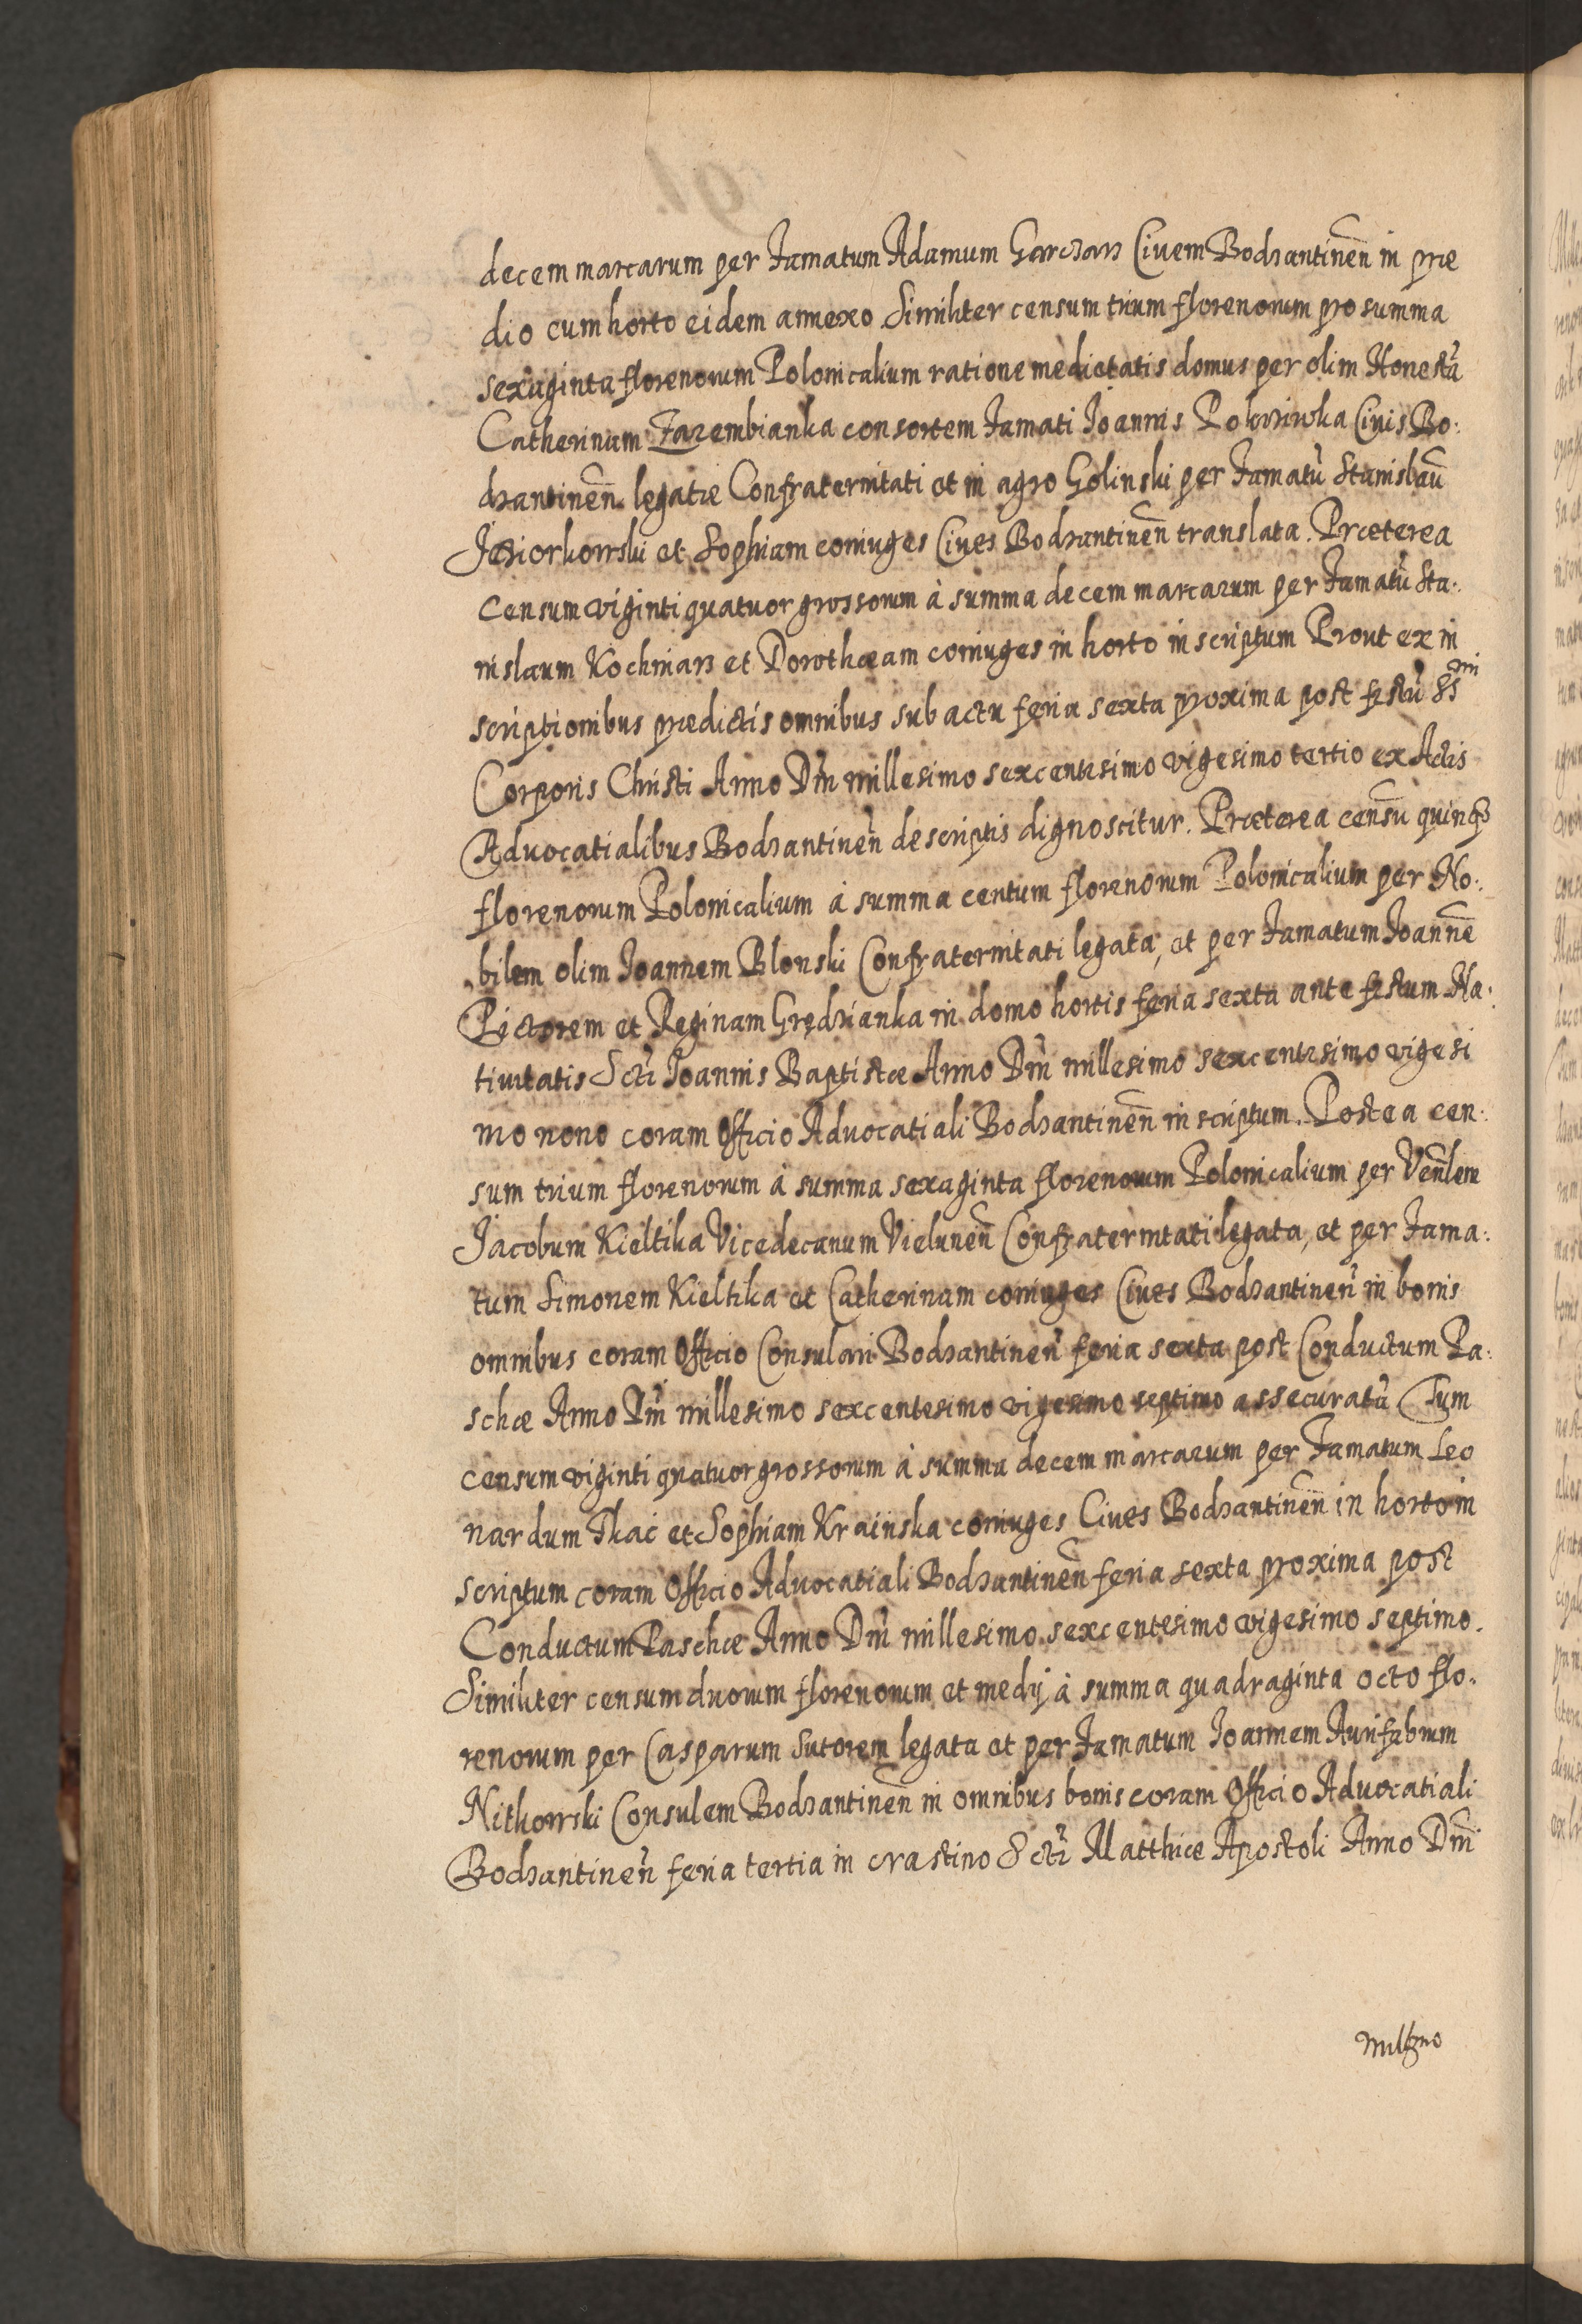 decem marcarum per Famatum Adamum Garczarz Civem Bodzantinen̄ in præ
dio cum horto eidem annexo Similiter censum trium florenorum pro summa
sexaginta florenorum Polonicalium ratione medietatis domus per olim Honestā
Catherinam Zarembianka consortem Famati Joannis Civis Bo:
dzantinen̄ legatæ Confraternitati et in agro Golinski per Famatū Stanislaū
Jeziorkowski et Sophiam coniuges Cives Bodzantinen̄ translata. Præterea
censum viginti quatuor grossorum à summa decem marcarum per Famatū Sta:
nislaum Kochniarz et Dorothæam coniuges in horto inscriptum Prout ex in
scriptionibus prædictis omnibus sub actu feria sexta proxima post festū SSmi
Corporis Christi Anno Dn̄i millesimo sexcentesimo vigesimo tertio ex Actis
Advocatialibus Bodzantinen̄ descriptis dignoscitur. Præterea censū quinq3
florenorum Polonicalium à summa centum florenorum Polonicalium per No:
bilem olim Joannem Blonski Confraternitati legata, et per Famatum Joannē
Pictorem et Reginam Grędzianka in domo hortis feria sexta ante festum Na:
tivitatis Scti Joannis Baptistæ Anno Dn̄i millesimo sexcentesimo vigesi
mo nono coram Officio Advocatiali Bodzantinen̄ inscriptum. Postea cen:
sum trium florenorum à summa sexaginta florenorum Polonicalium per Ven̄lem
Jacobum Kieltika Vicedecanum Vielunen̄ Confraternitati legata, et per Fama:
tum Simonem Kieltika et Catherinam coniuges Cives Bodzantinen̄ in bonis
omnibus coram Officio Consulari Bodzantinen̄ feria sexta post Conductum Pa:
schæ Anno Dn̄i millesimo sexcentesimo vigesimo septimo assecuratū Tum
censum viginti quatuor grossorum à summa decem marcarum per Famatum Leo
nardum Tkac et Sophiam Krainska coniuges Cives Bodzantinen̄ in horto in
scriptum coram Officio Advocatiali Bodzantinen̄ feria sexta proxima post
Conductum Paschæ Anno Dn̄i millesimo sexcentesimo vigesimo septimo.
Similiter censum duorum florenorum et medij à summa quadraginta octo flo:
renorum per Casparum Sutorem legata et per Famatum Joannem Aurifabrum
Nitkowski Consulem Bodzantinen̄ in omnibus bonis coram Officio Advocatiali
Bodzantinen̄ feria tertia in crastino Scti Matthiæ Apostoli Anno Dn̄i